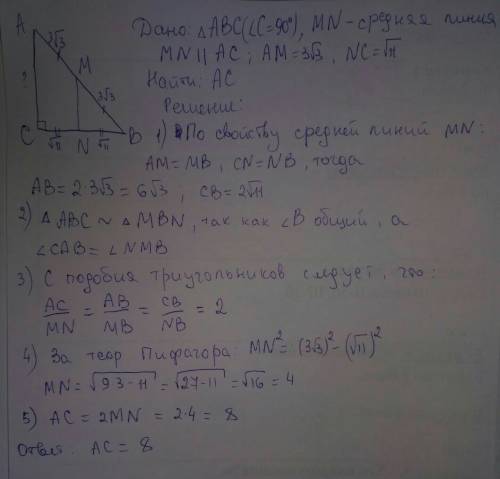 A
3√3
M
?
3√3
C
√11
N
√11
B
Дано: △ABC(∠C=90°), MN - средняя линия
MN || AC ; AM=3√3 , NC=√11
Найти: AC
Решение:
1) По свойству средней линий MN:
AM = MB, CN = NB, тогда
AB = 2·3√3 = 6√3 ; CB = 2√11
2) △ABC ~ △MBN, так как ∠B общий, а
∠CAB = ∠NMB
3) С подобия треугольников следует, что:
AC/MN = AB/MB = CB/NB = 2
4) За теор Пифагора: MN² = (3√3)² - (√11)²
MN = √9·3-11 = √27-11 = √16 = 4
5) AC = 2MN = 2·4 = 8
Ответ. AC = 8